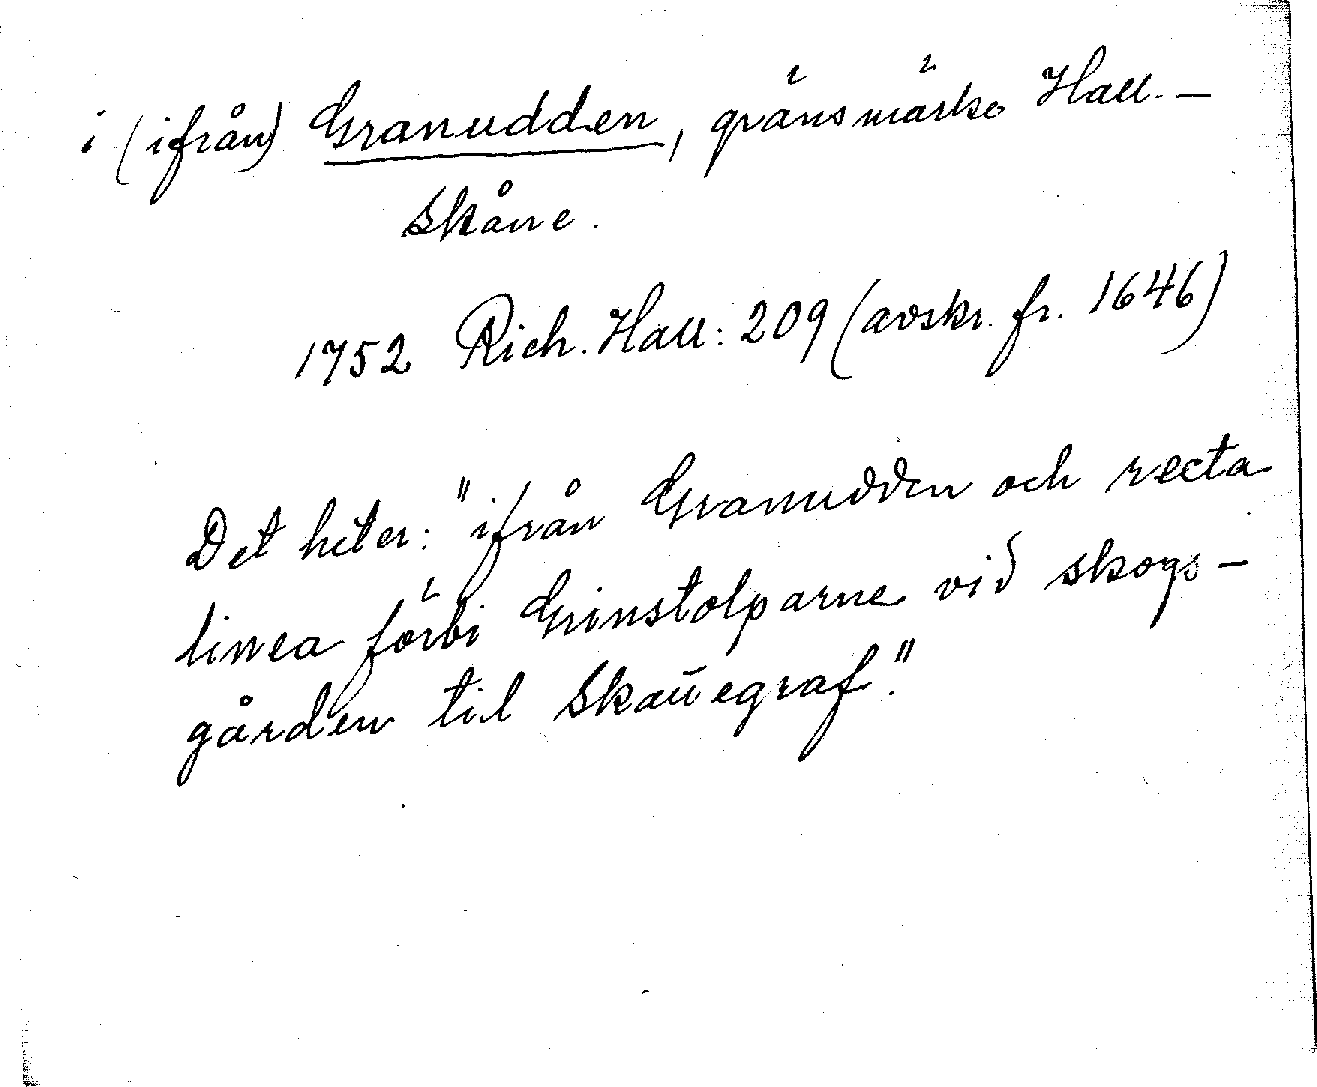 i (ifrån) Granudden, gränsmärke Hall.-
Skåne.
1752 Rich. Hall: 209 (avskr. fr. 1646)
Det heter: "ifrån Granudden och recta
linea förbi Grinstolparne vid skogs-
gården til Skauegraf."